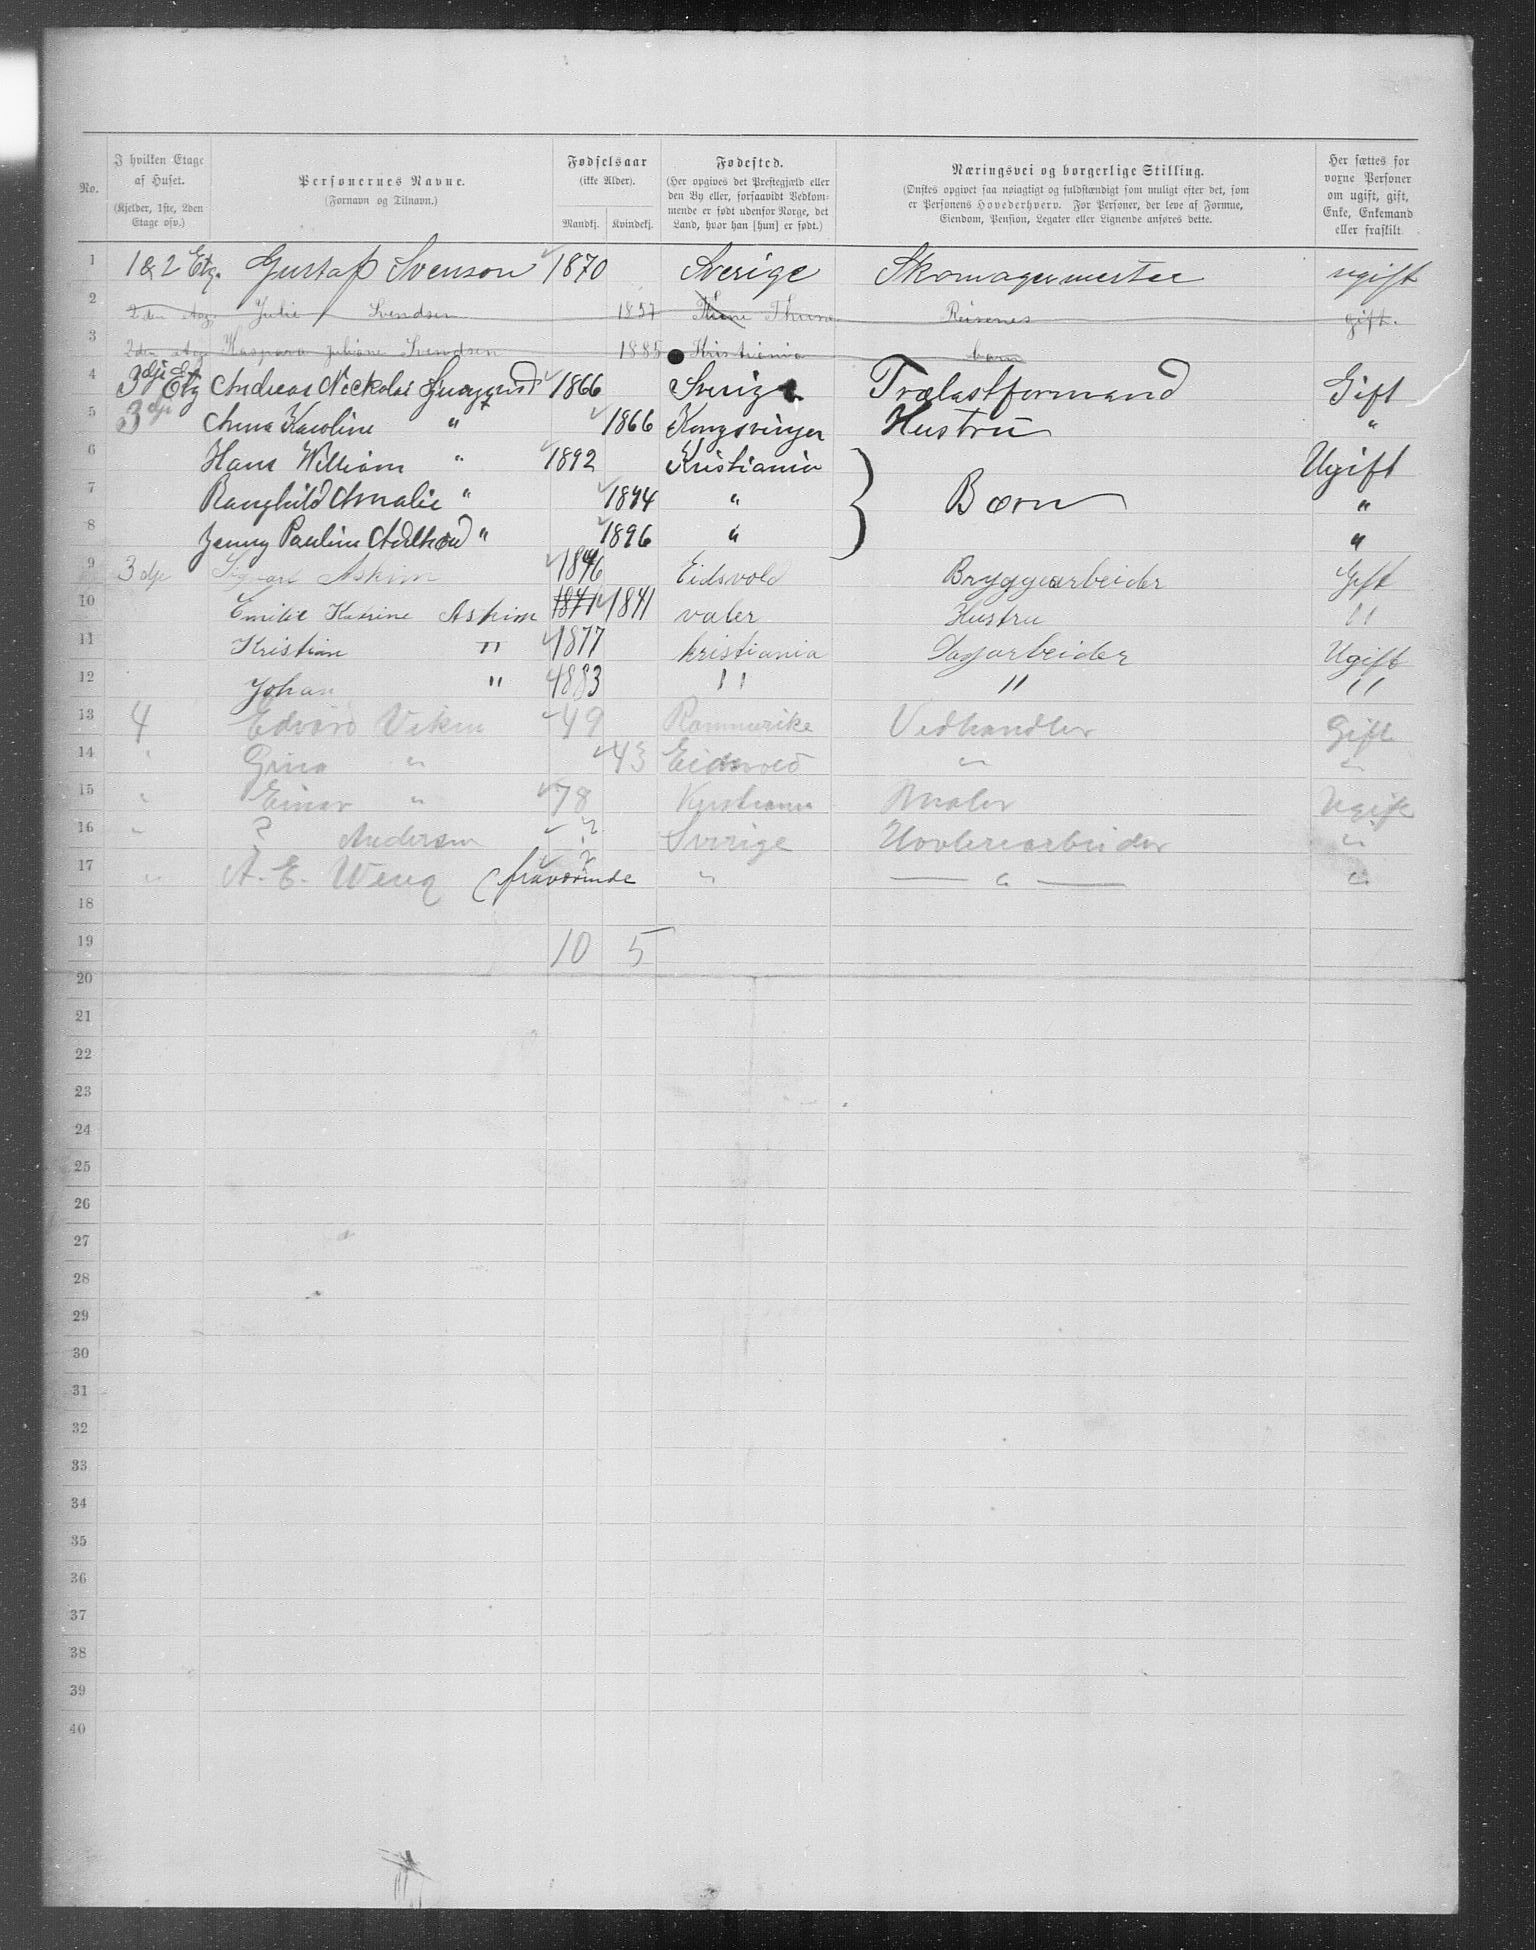 No.
I hvilken Etage
af Huset.
(Kjelder, 1ste, 2den
Etage osv.)
Personernes Navne.
(Fornavn og Tilnavn.)
Fødselsaar
(ikke Alder).
Mandkj. Kvindekj.
Fødested.
(Her opgives det Prestegjæld eller
den By eller, forsaavidt Vedkom-
mende er født udenfor Norge, det
Land, hvor han [hun] er født.)
Næringsvei og borgerlige Stilling.
(Ønskes opgivet saa nøiagtigt og fuldstændigt som muligt efter det, som
er Personens Hovederhverv. For Personer, der leve af Formue,
Eiendom, Pension, Legater eller Lignende anføres dette.
Her sættes for
voxne Personer
om ugift, gift,
Enke, Enkemand
eller fraskilt.
1 1 & 2 Etg. Gustaf Svenson 1870 Sverige Skomagermester ugift
2 2den Julie Svendsen 1857 Reisenes gift.
3 2den Kaspara Juliane Svendsen 1885 Kristiania barn
4 3dje Etg Andreas Nickolai 1866 Sverige Trælastformand Gift
5 3dje Anna Karoline " 1866 Kongsvinger Hustru "
6 Hans William " 1892 Kristiania Ugift
7 Ranghild Amalie " 1894 " Børn "
8 Jenny Pauline " 1896 " "
9 3dje Sigvart Askim 1846 Eidsvold Bryggearbeider Gift
10 Emilie Katrine Askim 1841 1841 valer Hustru "
11 Kristian " 1877 kristiania Dagarbeider Ugift
12 Johan " 1883 " " "
13 4 Edvard Viken 49 Romerike Vedhandler Gift
14 " Grina " 43 Eidsvold " "
15 " Einar " 78 Kristiania Maler Ugift
16 " ? Andersen ? Sverige Høvleriarbeider "
17 " A. E. Weng (fraværende ? " " "
18
19 10 5
20
21
22
23
24
25
26
27
28
29
30
31
32
33
34
35
36
37
38
39
40